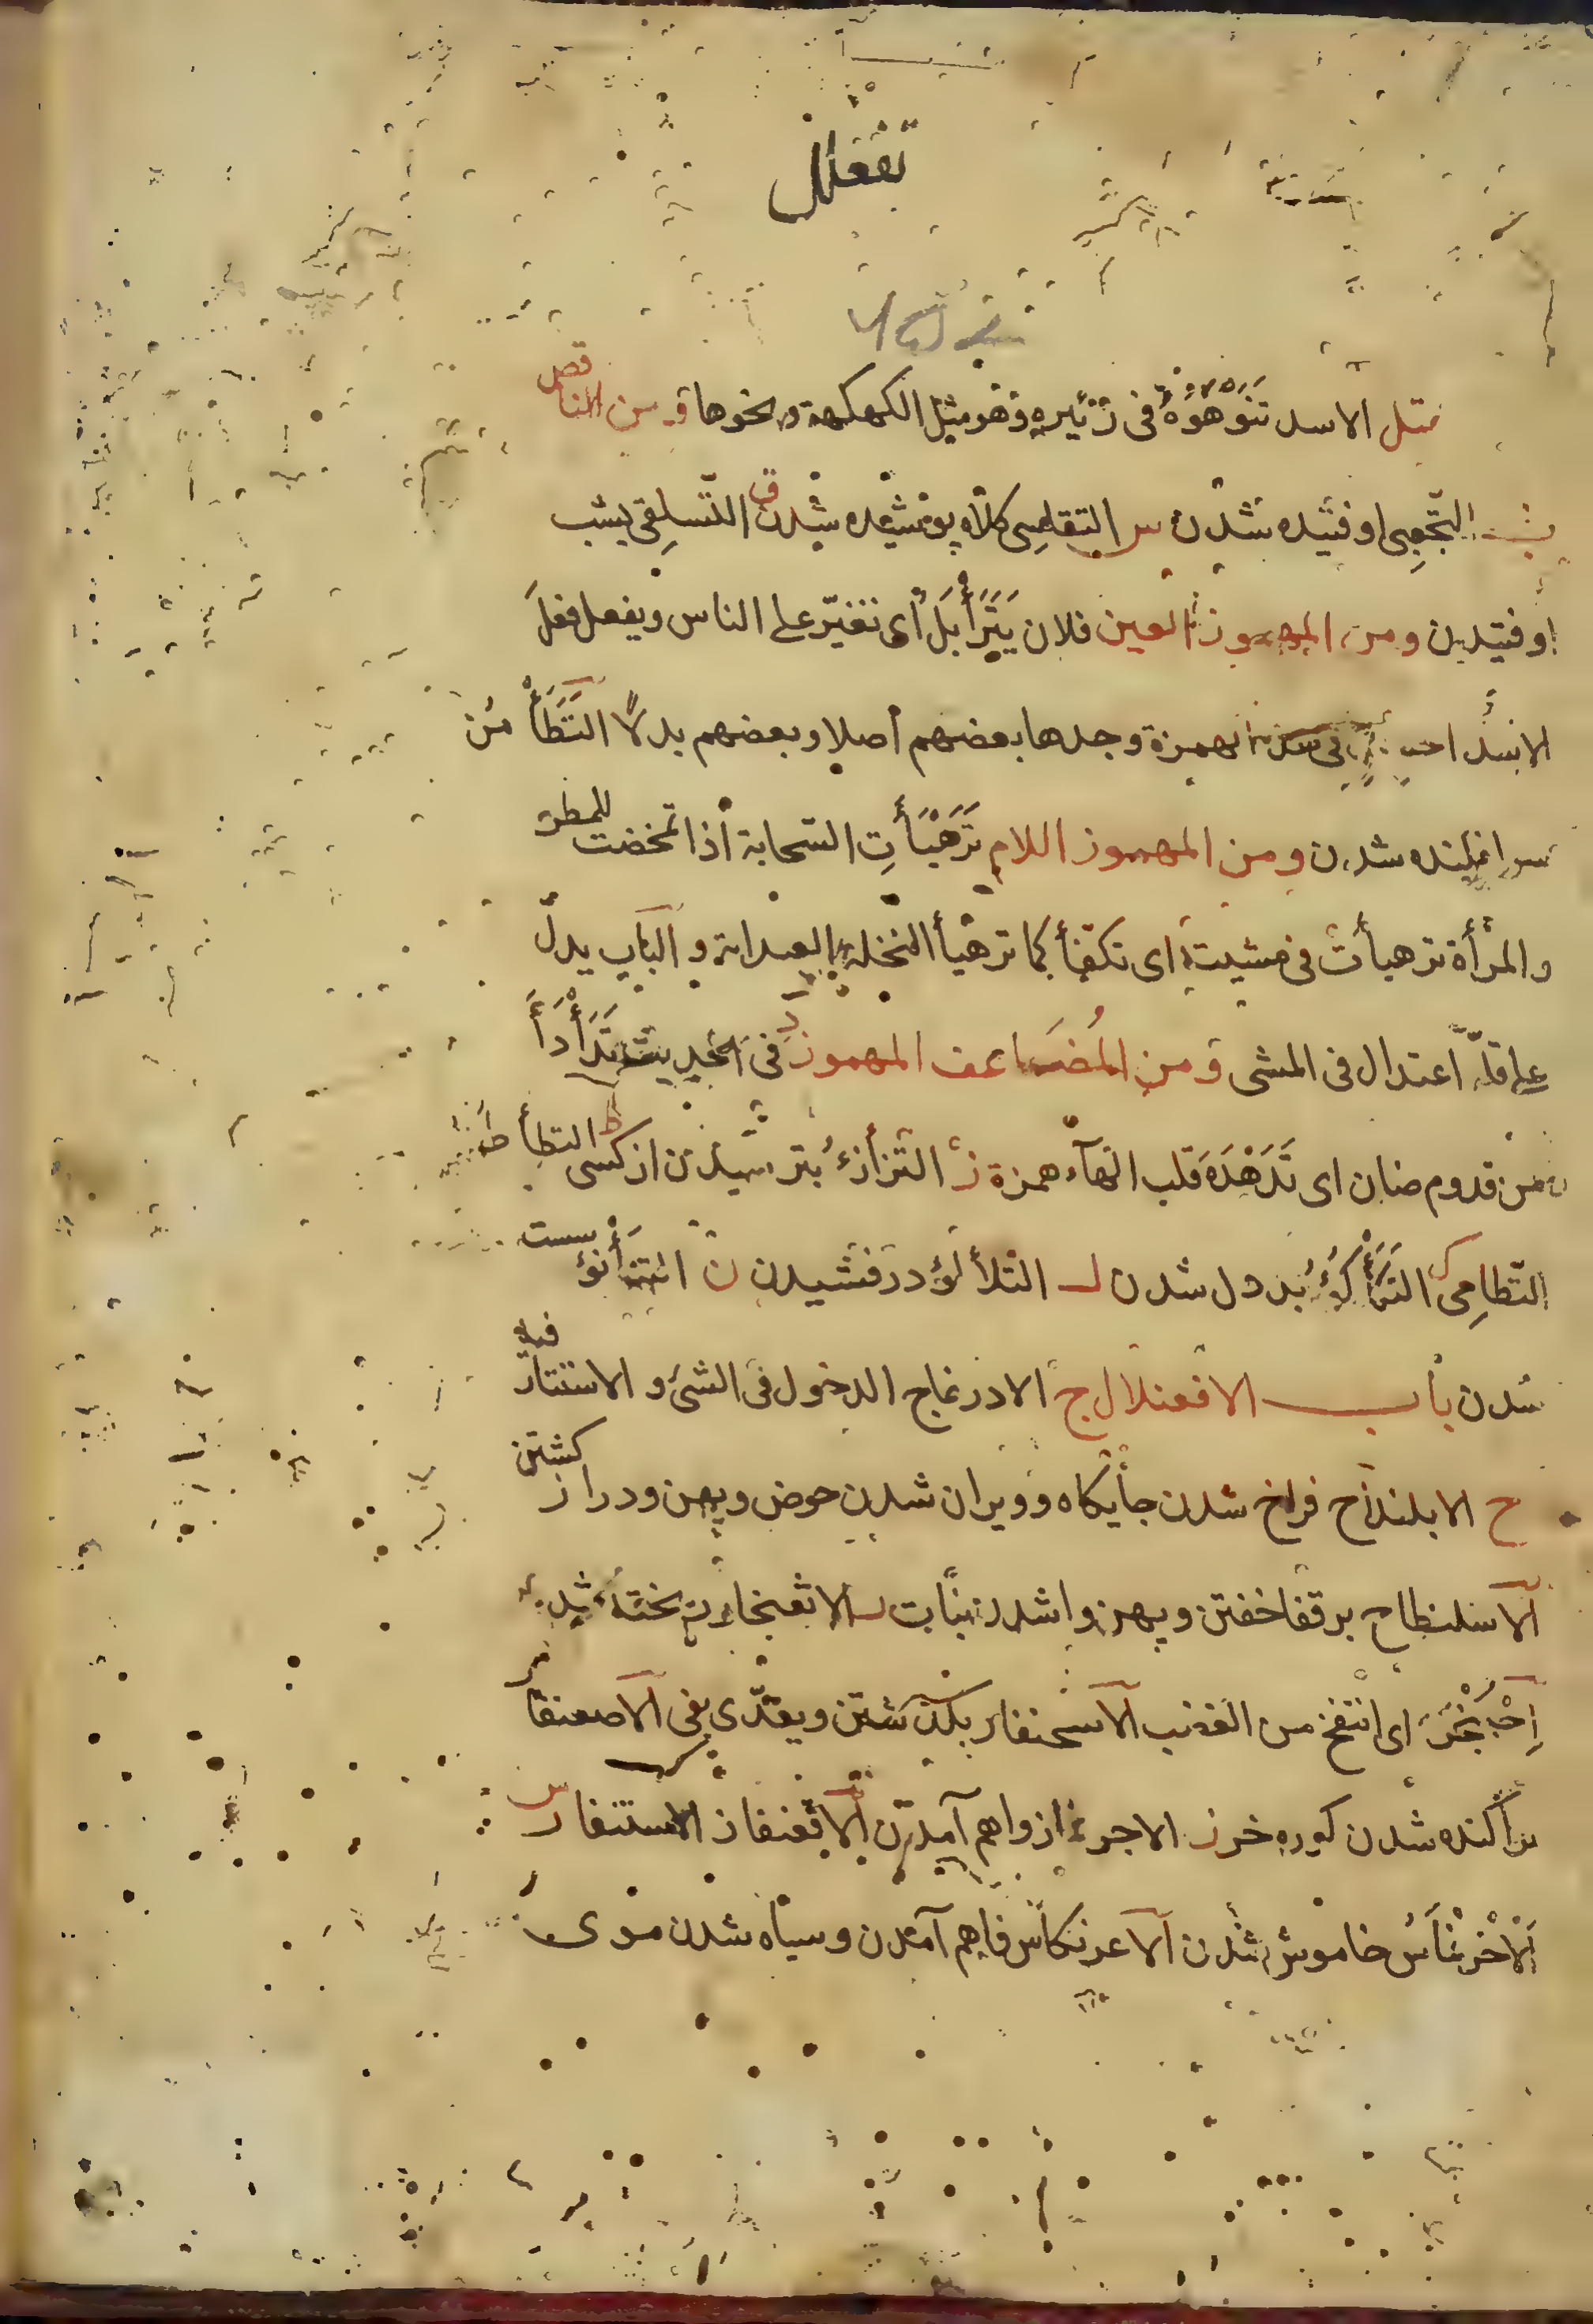 تفعلل
مثل الاسد تَنَوَهْوَهُ فى زئيره وهو مثل الكهكهة ونحوها ومن الناقص
التّجعبى اوفتيده شدن س التقلسى كلاه پوشيده شدن ق التّسلقى بپشت
اوفتيدن ومن المهموز العين فلان يَتَرَأْبَلُ اى تغيّر على الناس ويفعل فعلَ
الاسد الهمزة وجدها بعضهم أصلا وبعضهم بدلًا التَّطَأْمُن
سرافكنده شدن ومن المهموز اللام تَرَهْيَأَتِ السّحابة اذا تمخضت للمطر
والمرأة ترهيأت فى مشيتها اى تكفّأ كما ترهيأ النخلة العيدانة والباب يدلّ
على قلّة اعتدال فى المشى ومن المُضَاعف المهموز د فى الحديث تَدَأْدَأَ
من قدوم ضان اى تَدَهْدَهَ قلب الهآء همزة ز التزأزؤ بترسيدن از كسى ط التطأطؤ
التّطامن ك التَكَأْكُؤُ بددل شدن ل التلألؤ درفشيدن ن التنأنؤ سست
شدن باب الافعنلال ج الادرنماج الدخول فى الشئ و الاستتار فيه
ح الابلنداح فراخ شدن جايكاه وويران شدن حوض وپهن ودراز كشتن
الاسلنطاح برقفا خفتن وپهن واشدن نبات الاثعنجار ريخته شدن
اِحْبَنْجَرَ اى انتفخ من الغضب الاسحنفار بكذشتن ويعدّى بفى الاصعنفار
پراكنده شدن كوره خر ز الاجرنماز واهم آمدن الاقعنفاز الاستنفار س
اَلْاخْرِنْمَاسُ خاموش شدن الاعرنكاس فاهم آمدن وسياه شدن موى